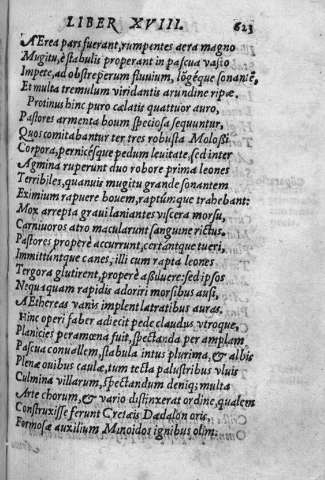 LIBER XVIII. 623
AErea pars fuerant, rumpentes aera magno
Mugitu, è stabulis properant in pascua vasto
Impete, ad obstreperum fluuium, lõgéque sonantẽ,
Et multa tremulum viridantis arundine ripæ.
Protinus hinc puro cælatis quattuor auro,
Pastores armenta boum speciosa sequuntur,
Quos comitabantur ter tres robusta Molossi
Corpora, pernicésque pedum leuitate, sed inter
Agmina ruperunt duo robore prima leones
Terribiles, quanuis mugitu grande sonantem
Eximium rapuere bouem, raptúmque trahebant:
Mox arrepta graui laniantes viscera morsu,
Carniuoros atro macularunt sanguine rictus.
Pastores properè accurrunt, certántque tueri,
Immittúntque canes, illi cum rapta leones
Tergora glutirent, properè adfluuere: sed ipsos
Nequaquam rapidis adoriri morsibus ausi,
AEthereas vanis implent latratibus auras.
Hinc operi faber adiecit pede claudus vtroque,
Planicies peramœna fuit, spectanda per amplam
Pascua conuallem, stabula intus plurima, & albis
Plenæ ouibus caulæ, tum tecta palustribus vluis
Culmina villarum, spectandum deniq; multa
Arte chorum, & vario distinxerat ordine, qualem
Construxisse ferunt Cretæis Dædalon oris,
Formosæ auxilium Minoidos ignibus olim: